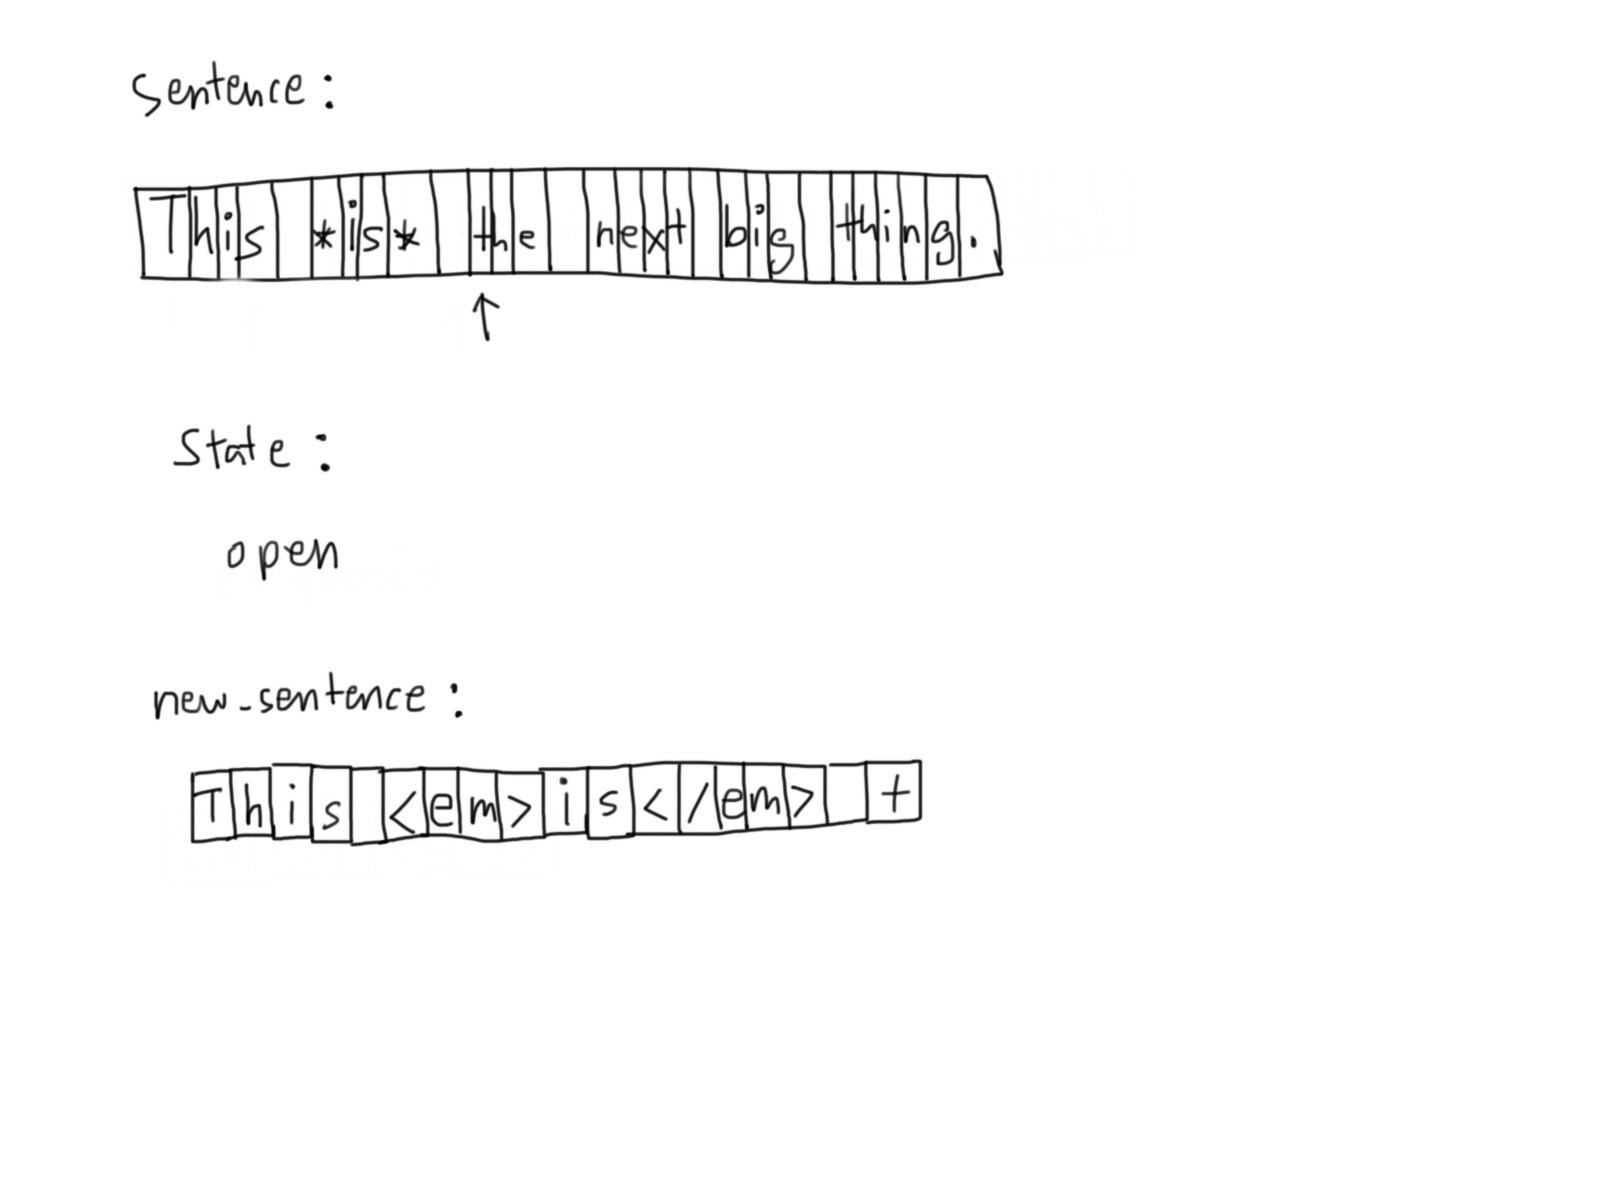 Sentence:
This *is* the next big thing.
↑
State:
open
new_sentence:
This <em>is</em> t